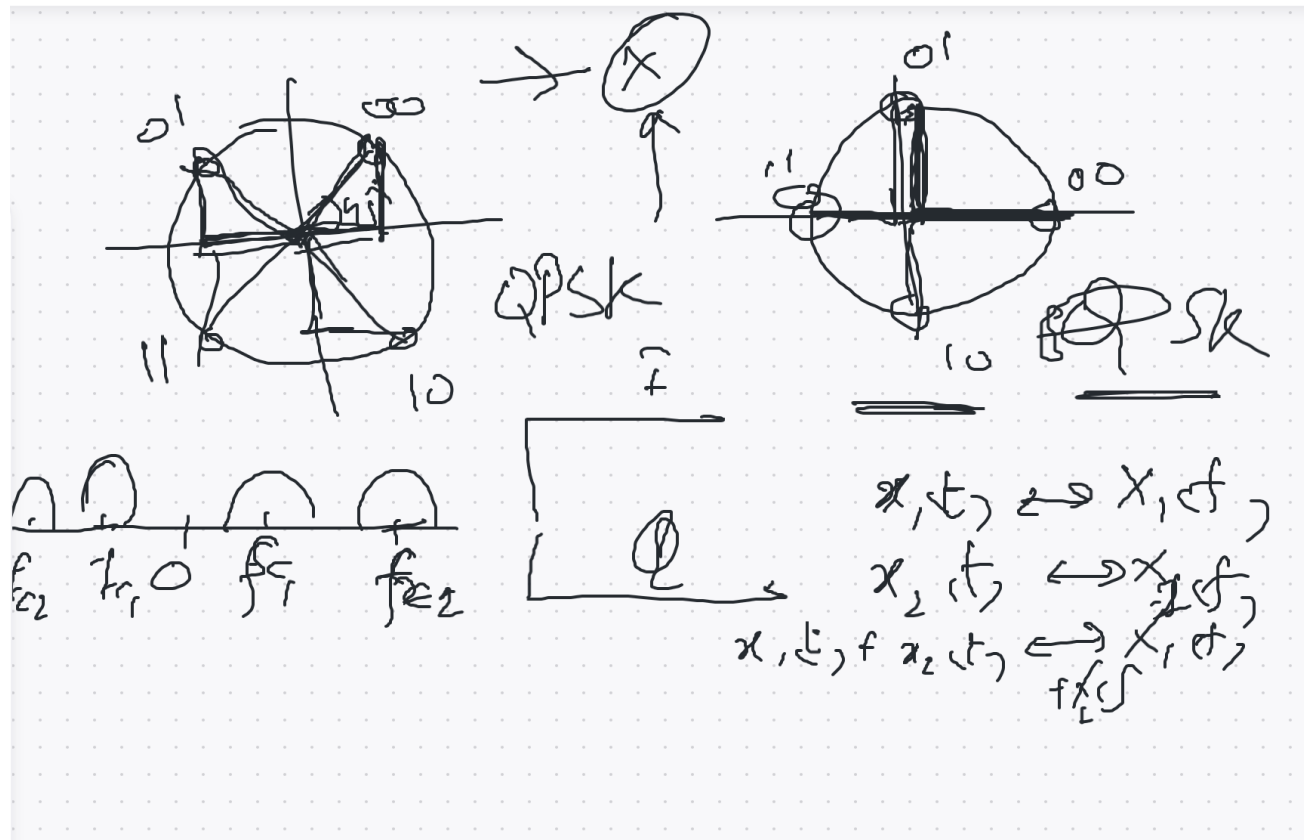 01
00
X
45°
11
10
QPSK
01
11
00
10
QPSK
I
Q
fc2 fc1 0 fc1 fc2
x1(t) ↔ X1(f)
x2(t) ↔ X2(f)
x1(t) + x2(t) ↔ X1(f)
+ X2(f)